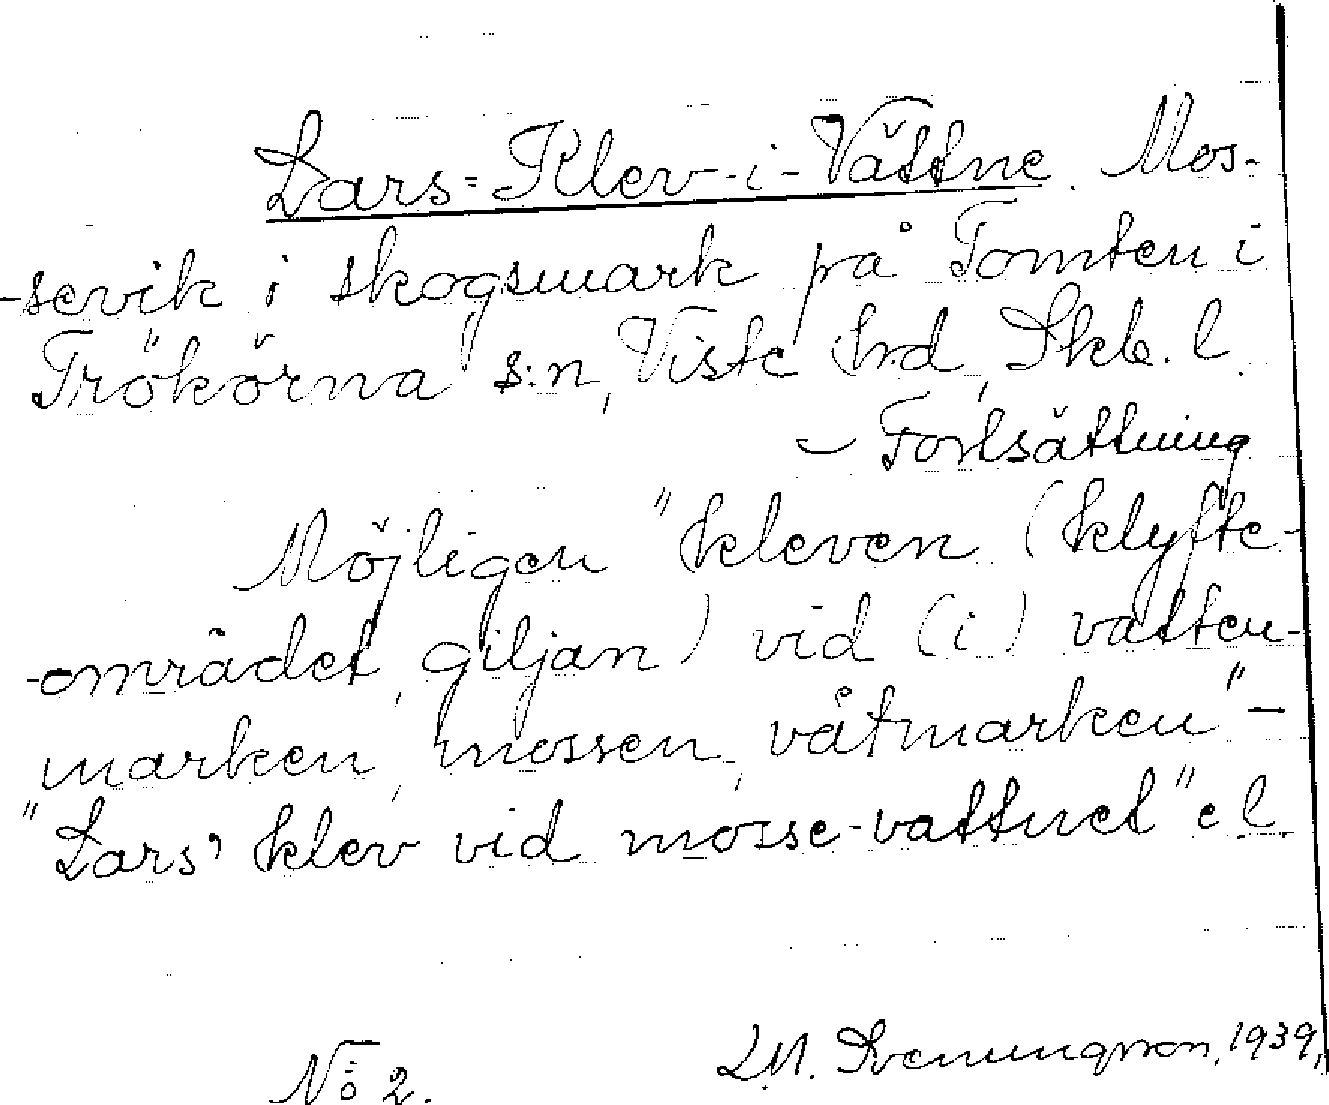 Lars-Klev-i-Vättne. Mos-
-sevik i skogsmark på Tomten i
Trökörna s:n, Viste hrd, Skb. l.
– Fortsättning
Möjligen "kleven (klyfte-
-området, giljan) vid (i) vatten-
marken, mossen, våtmarken" –
"Lars' klev vid mosse-vattnet" el.
No 2.
LM. Sveningsson, 1939,